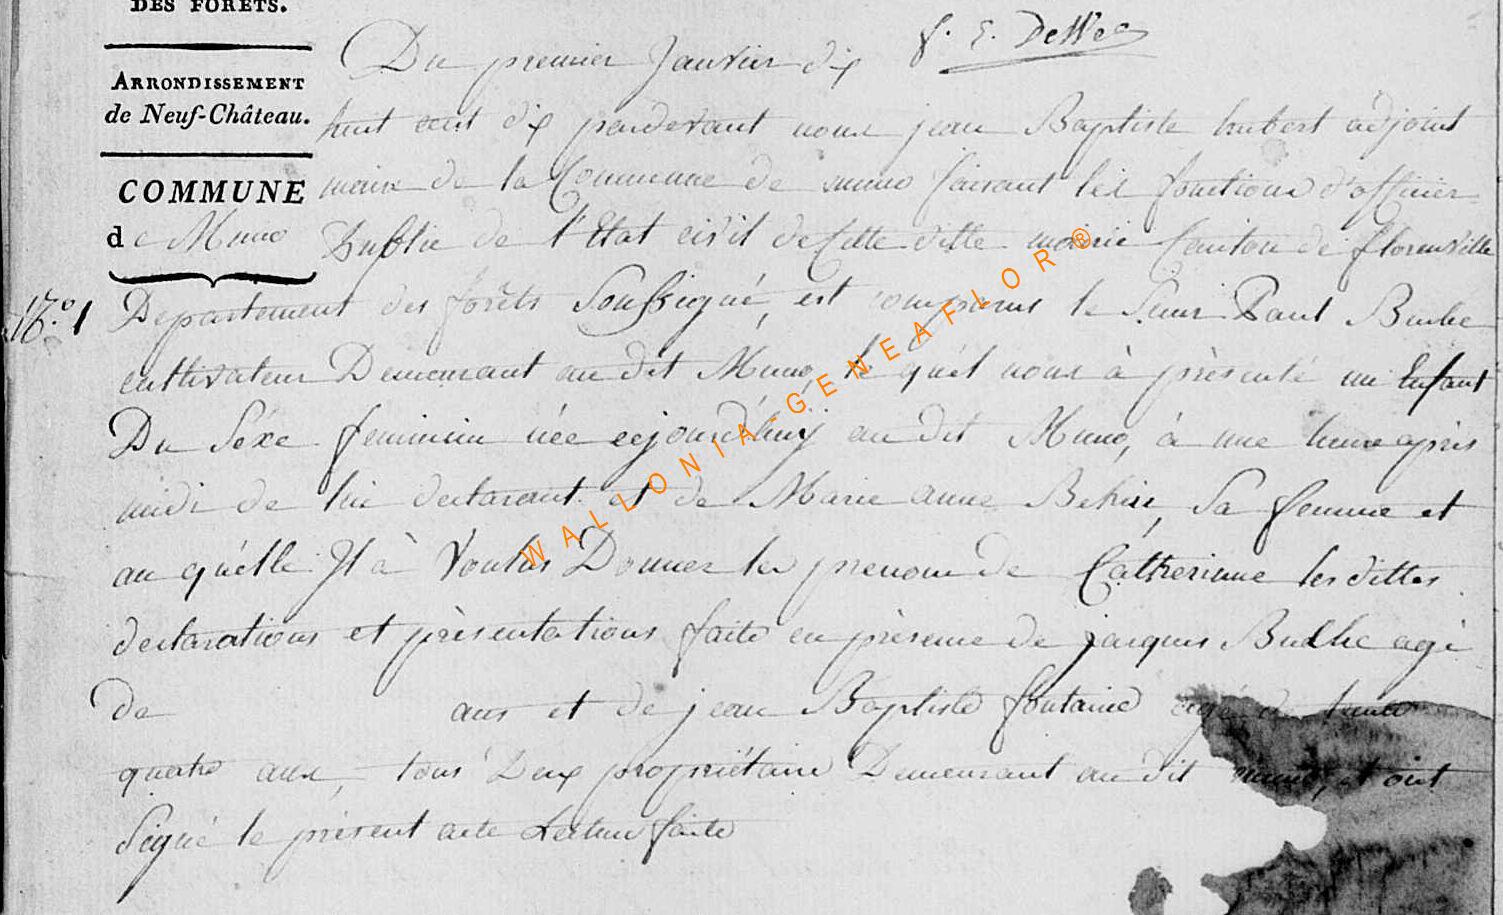 DES FORÊTS.
f. E. DeWez
ARRONDISSEMENT
de Neuf-Château.
COMMUNE
de Muno
N.º 1
Du premier Janvier dix
huit cent dix pardevant nous jean Baptiste hubert adjoint
maire de la Commune de muno faisant les fonctions d'officier
Public de l'Etat civil de Cette ditte mairie Canton de florenville
Departement des forêts Soussigné, est comparus le Sieur Paul
cultivateur Demeurant au dit Muno, le quél nous à présenté un Enfant
Du Séxe feminin née cejourd'huij au dit Muno, à une heure après
midi de lui declarant et de Marie anne Sa femme et
au quélle Il à Voulus Donner les prenom de Catherinne les dittes
declarations et présentations faite en présence de jacques agé
De ans et de jean Baptiste fontaine agé de trente
quatre ans, tous Deux propriétaire Demeurant au dit muno, et ont
Signé le présent acte Lecture faite
WALLONIA-GENEAFLOR®